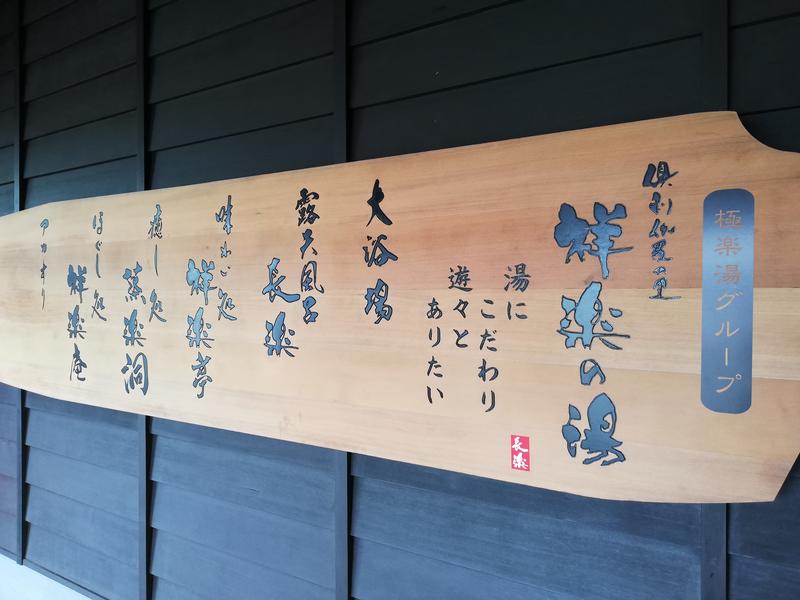 極楽湯グループ
倶利伽羅重
祥楽の湯
湯に
こだわり
遊々と
ありたい
長楽
大浴場
露天風呂
長楽
味わい処
祥楽亭
癒し処
蒸楽洞
ほぐし処
祥楽庵
アカスリ